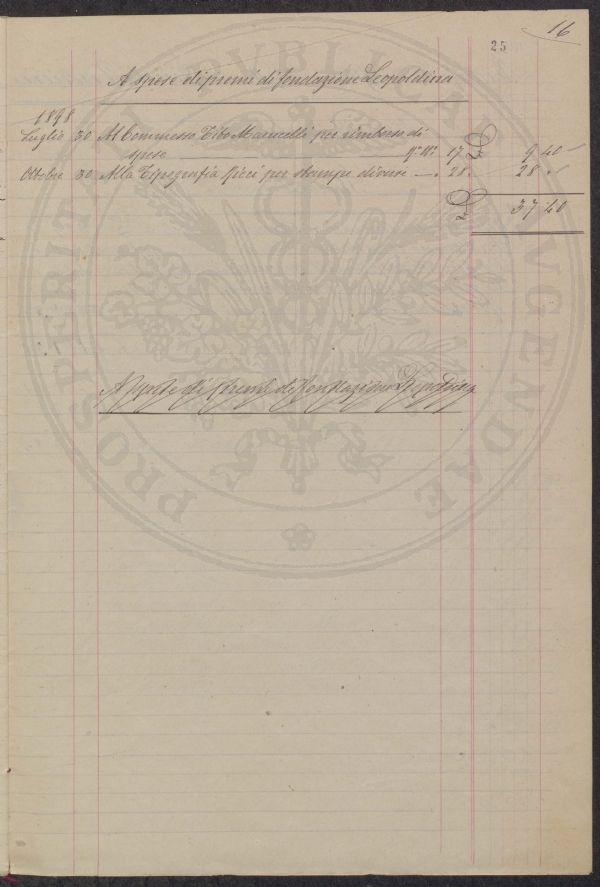 16
25
A spese di premi di fondazione Leopoldina
1898
Luglio 30 Al Commesso Tito Marucelli per rimborso di
spese N.° M.° 17 £ 9 40
Ottobre 30 Alla Tipografia Ricci per stampe diverse 28 28
£ 37.40
A spese di premi di fondazione Leopoldina
PROSPERITATI PUBLICAE AUGENDAE